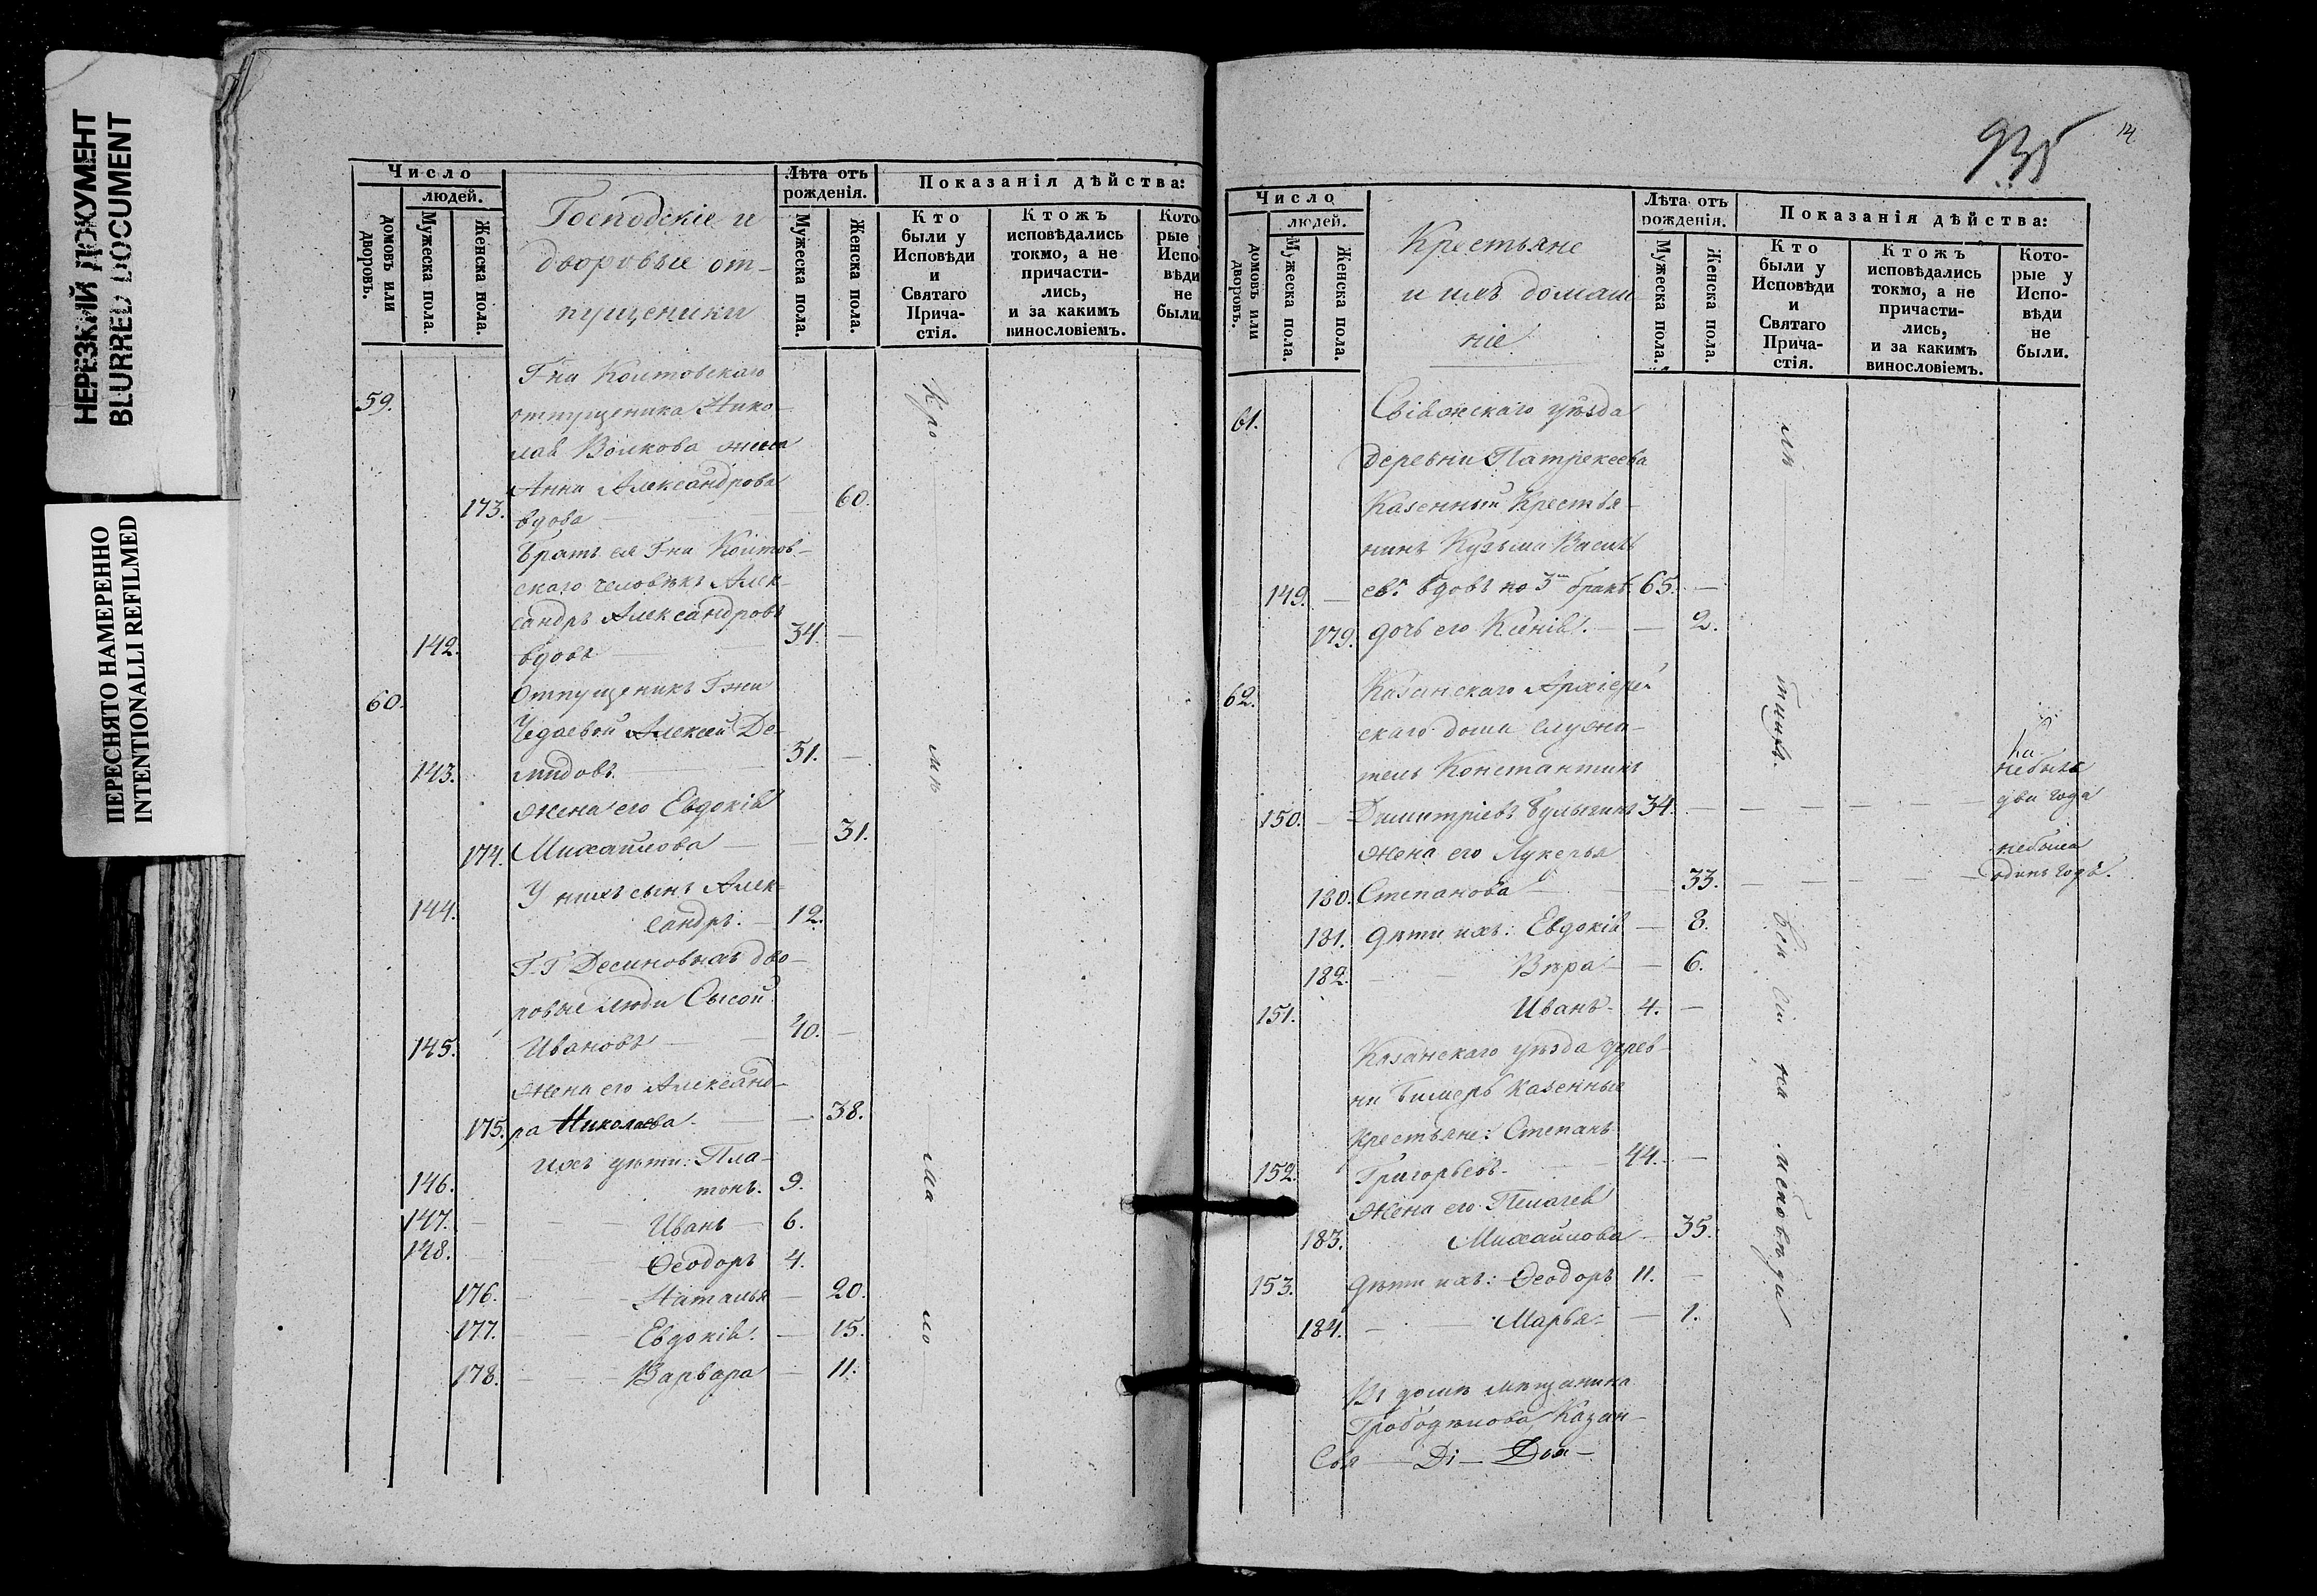 НЕРЕЗКИЙ ДОКУМЕНТ
BLURRED DOCUMENT
ПЕРЕСНЯТО НАМЕРЕННО
INTENTIONALLI REFILMED
Число
людей.
домовъ или дворовъ.
Мужеска пола.
Женска пола.
Господскіе и
дворовые от-
пущеники
Лѣта отъ
рожденія.
Мужеска пола.
Женска пола.
Показанія дѣйства:
Кто
были у
Исповѣди
и
Святаго
Прича-
стія.
Ктожъ
исповѣдались
токмо, а не
причасти-
лись,
и за какимъ
винословіемъ.
Кото-
рые
Испо-
вѣди
не
были.
59.
Г-на Колтовскаго
отпущеника Нико-
лая Волкова жена
173. Анна Александрова 60.
вдова
Братъ ея Г-на Колтов-
скаго человѣкъ Алек-
сандръ Александровъ 34.
142. вдовъ
60. Отпущеникъ Г-жи
Чедаевой Алексей Де- 51.
143. мидовъ.
Жена его Евдокія
174. Михайлова 31.
У нихъ сынъ Алек-
144. сандръ. 12.
Г.Г Десиновыхъ дво-
ровые люди Сысой
145. Ивановъ 40.
Жена его Александ-
175. ра Николаева 38.
ихъ дѣти: Пла-
146. тонъ. 9.
147. Иванъ 6.
148. Ѳеодоръ 4.
176. Наталья 20.
177. Евдокія. 15.
178. Варвара 11.
935
14
Число
людей.
домовъ или дворовъ.
Мужеска пола.
Женска пола.
Крестьяне
и ихъ домаш-
ніе
Лѣта отъ
рожденія.
Мужеска пола.
Женска пола.
Показанія дѣйства:
Кто
были у
Исповѣди
и
Святаго
Прича-
стія.
Ктожъ
исповѣдались
токмо, а не
причасти-
лись,
и за какимъ
винословіемъ.
Кото-
рые у
Испо-
вѣди
не
были.
61. Свіяжскаго уѣзда
деревни Патрекеева
Казенный Крестья-
нинъ Кузьма Василь
149. евъ вдовъ по 3 бракѣ. 65.
179. дочь его Ксенія. 2.
62. Казанскаго Архіерей
скаго дома служи-
тель Константинъ
150. Димитріевъ Булыгинъ 34. небылъ
два года
Жена его Лукерья
180. Степанова 33. небыла
одинъ годъ.
181. дѣти ихъ: Евдокія 8.
182. Вѣра 6.
151. Иванъ 4.
Казанскаго уѣзда дерев-
ни Бимерь казенные
крестьяне: Степанъ
152. Григорьевъ 44.
Жена его Пелагея
183. Михайлова 35.
153. дѣти ихъ: Ѳеодоръ 11.
184. Марья 1.
Въ домѣ мѣщанина
Грободѣлова Казан-
Свя Ді Доя